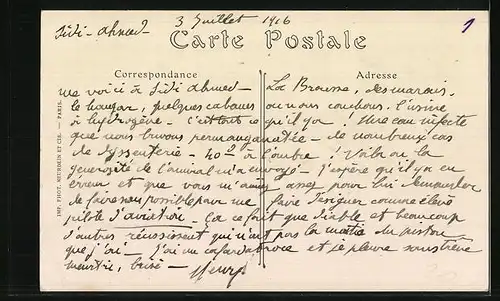 Sidi-Ahmed
3 Juillet 1916
1
Carte Postale
Correspondance
Adresse
me voici à Sidi Ahmed - La Brousse, des marais,
le hangar, quelques cabanes où nous couchons. L'usine
à hydrogène - C'est tout ce qu'il y a ! Une eau infecte
que nous buvons permanganatée - de nombreux cas
de dyssenterie - 40° à l'ombre ! Voilà où la
générosité de l'amiral m'a envoyé - J'espère qu'il y a eu
erreur et que vous m'aimez assez pour lui demander
de faire son possible pour me faire désigner comme élève
pilote d'aviation - Ca ce fait que diable et beaucoup
d'autres réussissent qui n'ont pas la moitié du piston
que j'ai - J'ai un cafard atroce et je pleure sans trève
meurtri, brisé - Henry
IMP. PHOT. NEURDEIN ET CIE. - PARIS.